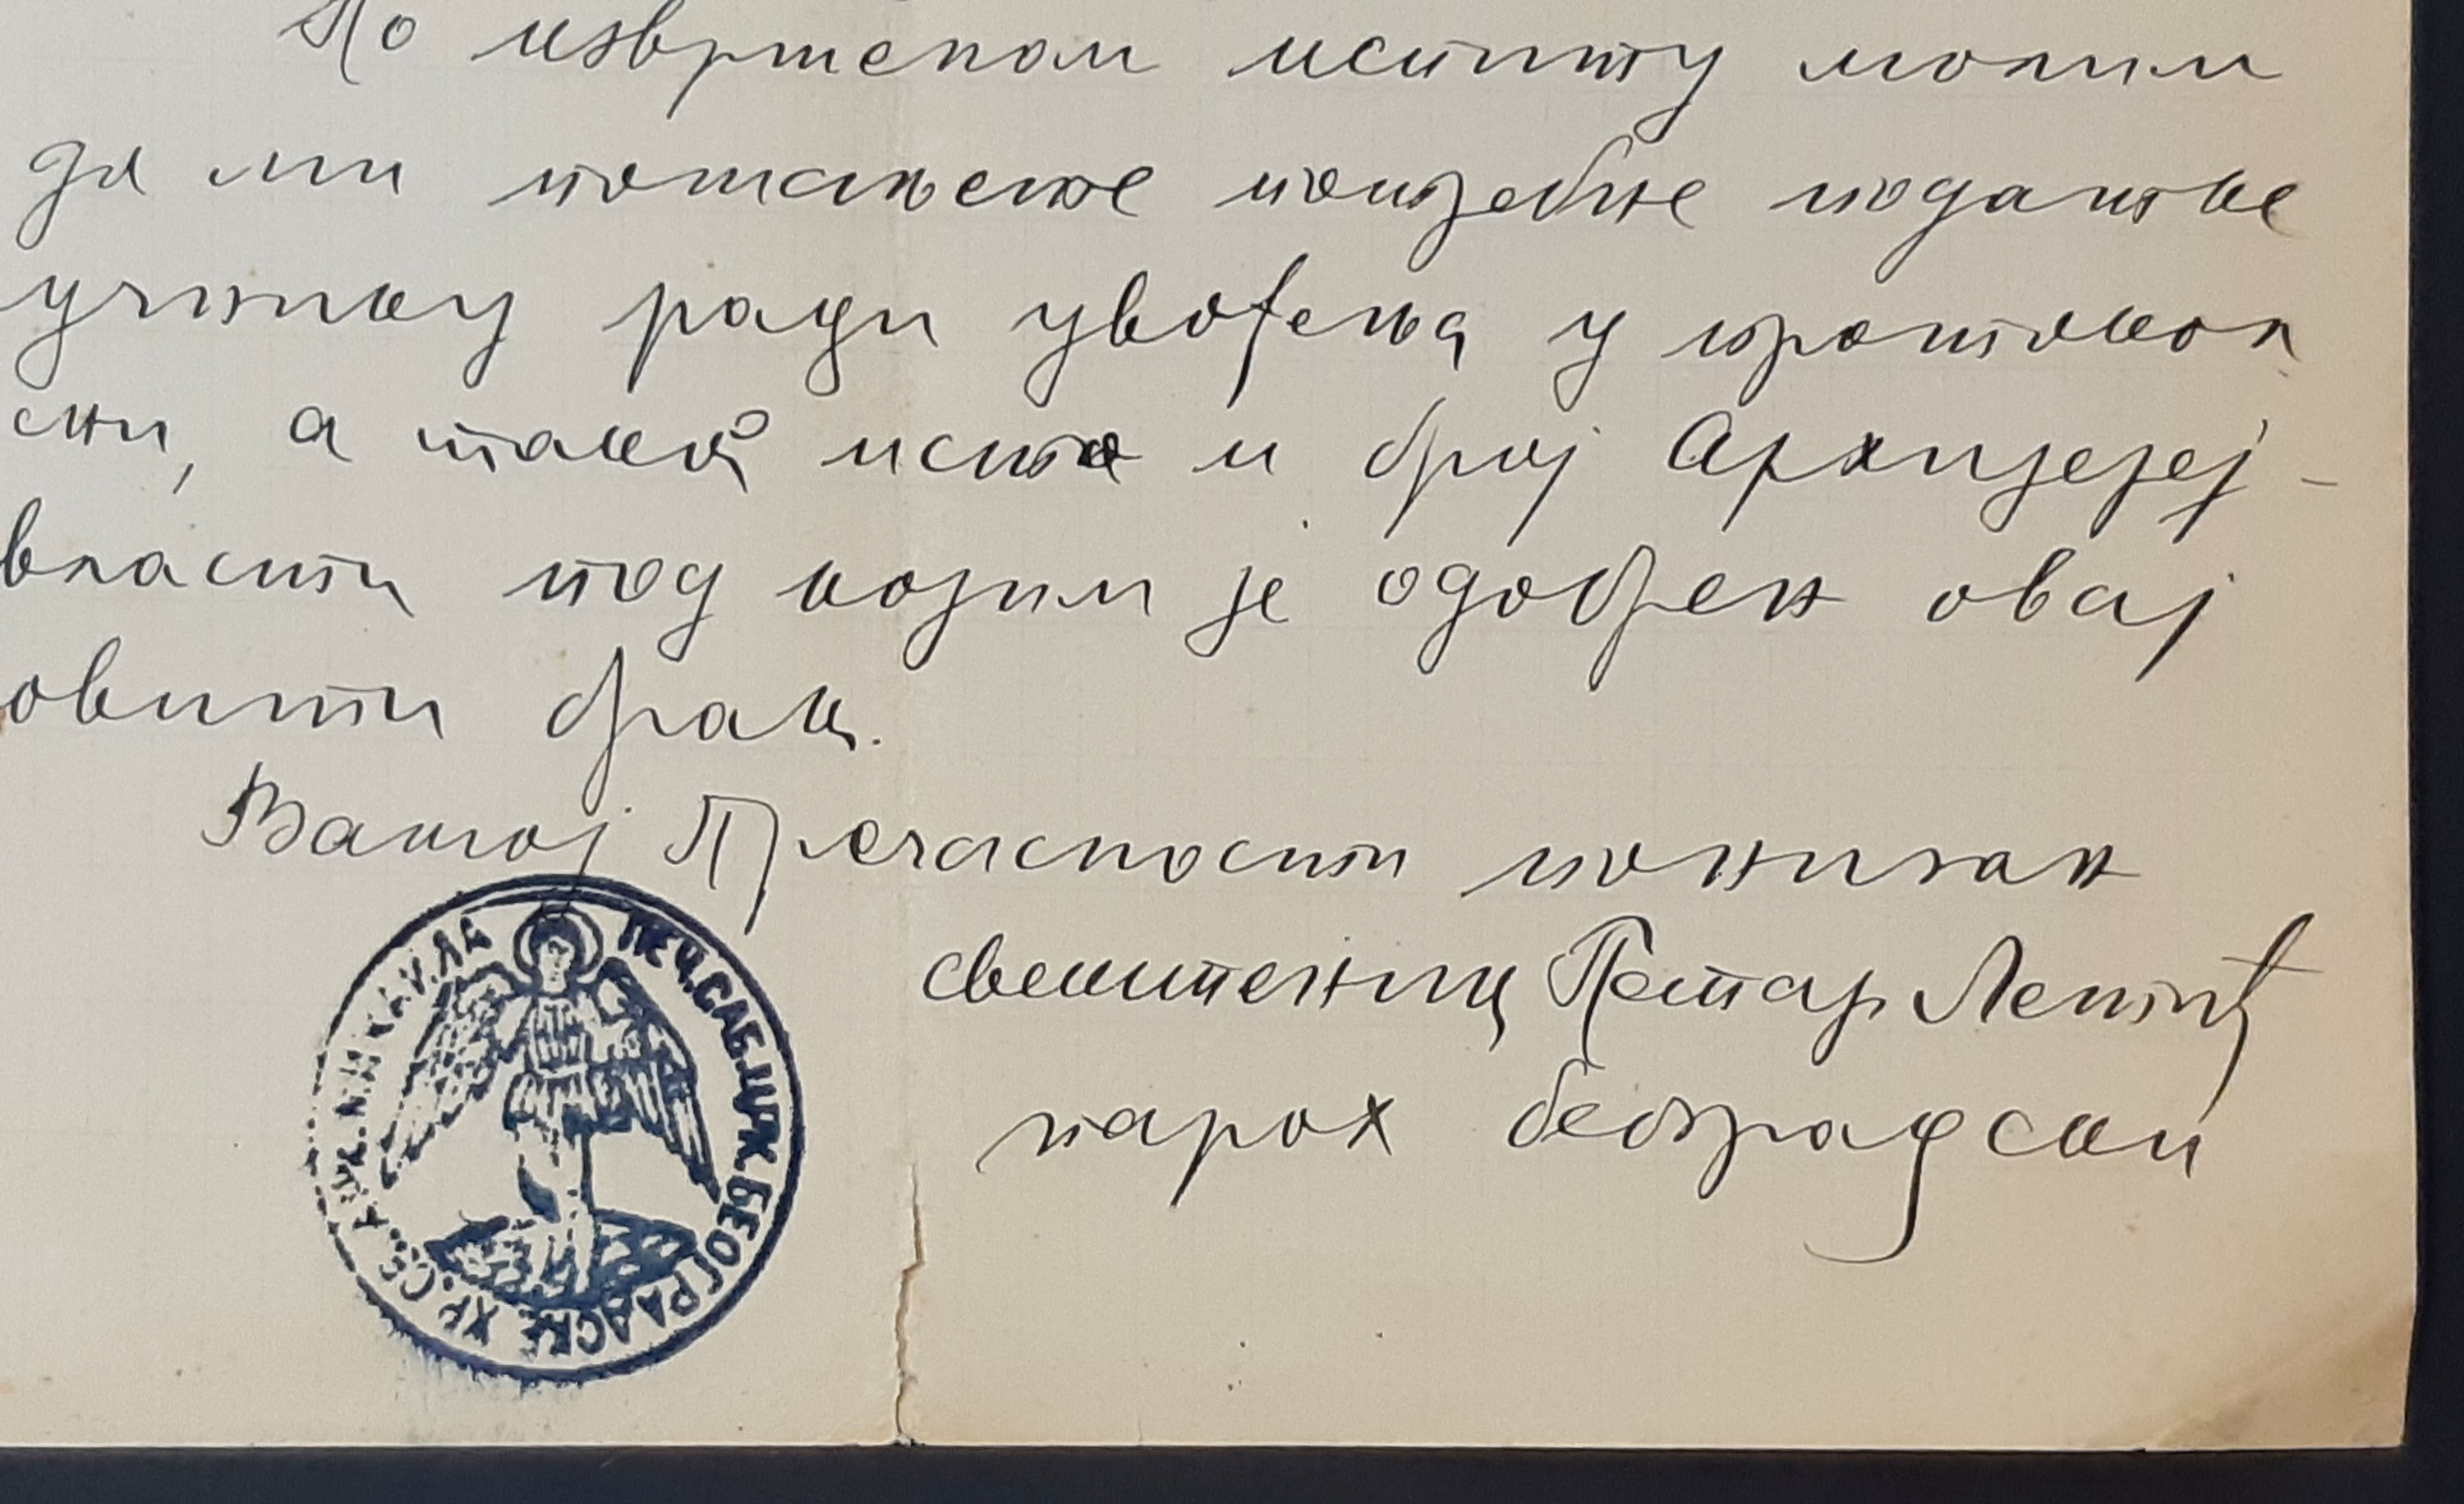 По извршеном испиту молим
да ми пошаљете потребне податке
учтиву ради увођења у протокол
сни, а тако исто и број Архијереј-
власти под којим је одобрен овај
овити брак.
Вашој Пречасности понизан
свештеник Петар Лептић
парох београдски
ПЕЧ. САБ. ЦРК. БЕОГРАДСКЕ ХР. СВ.